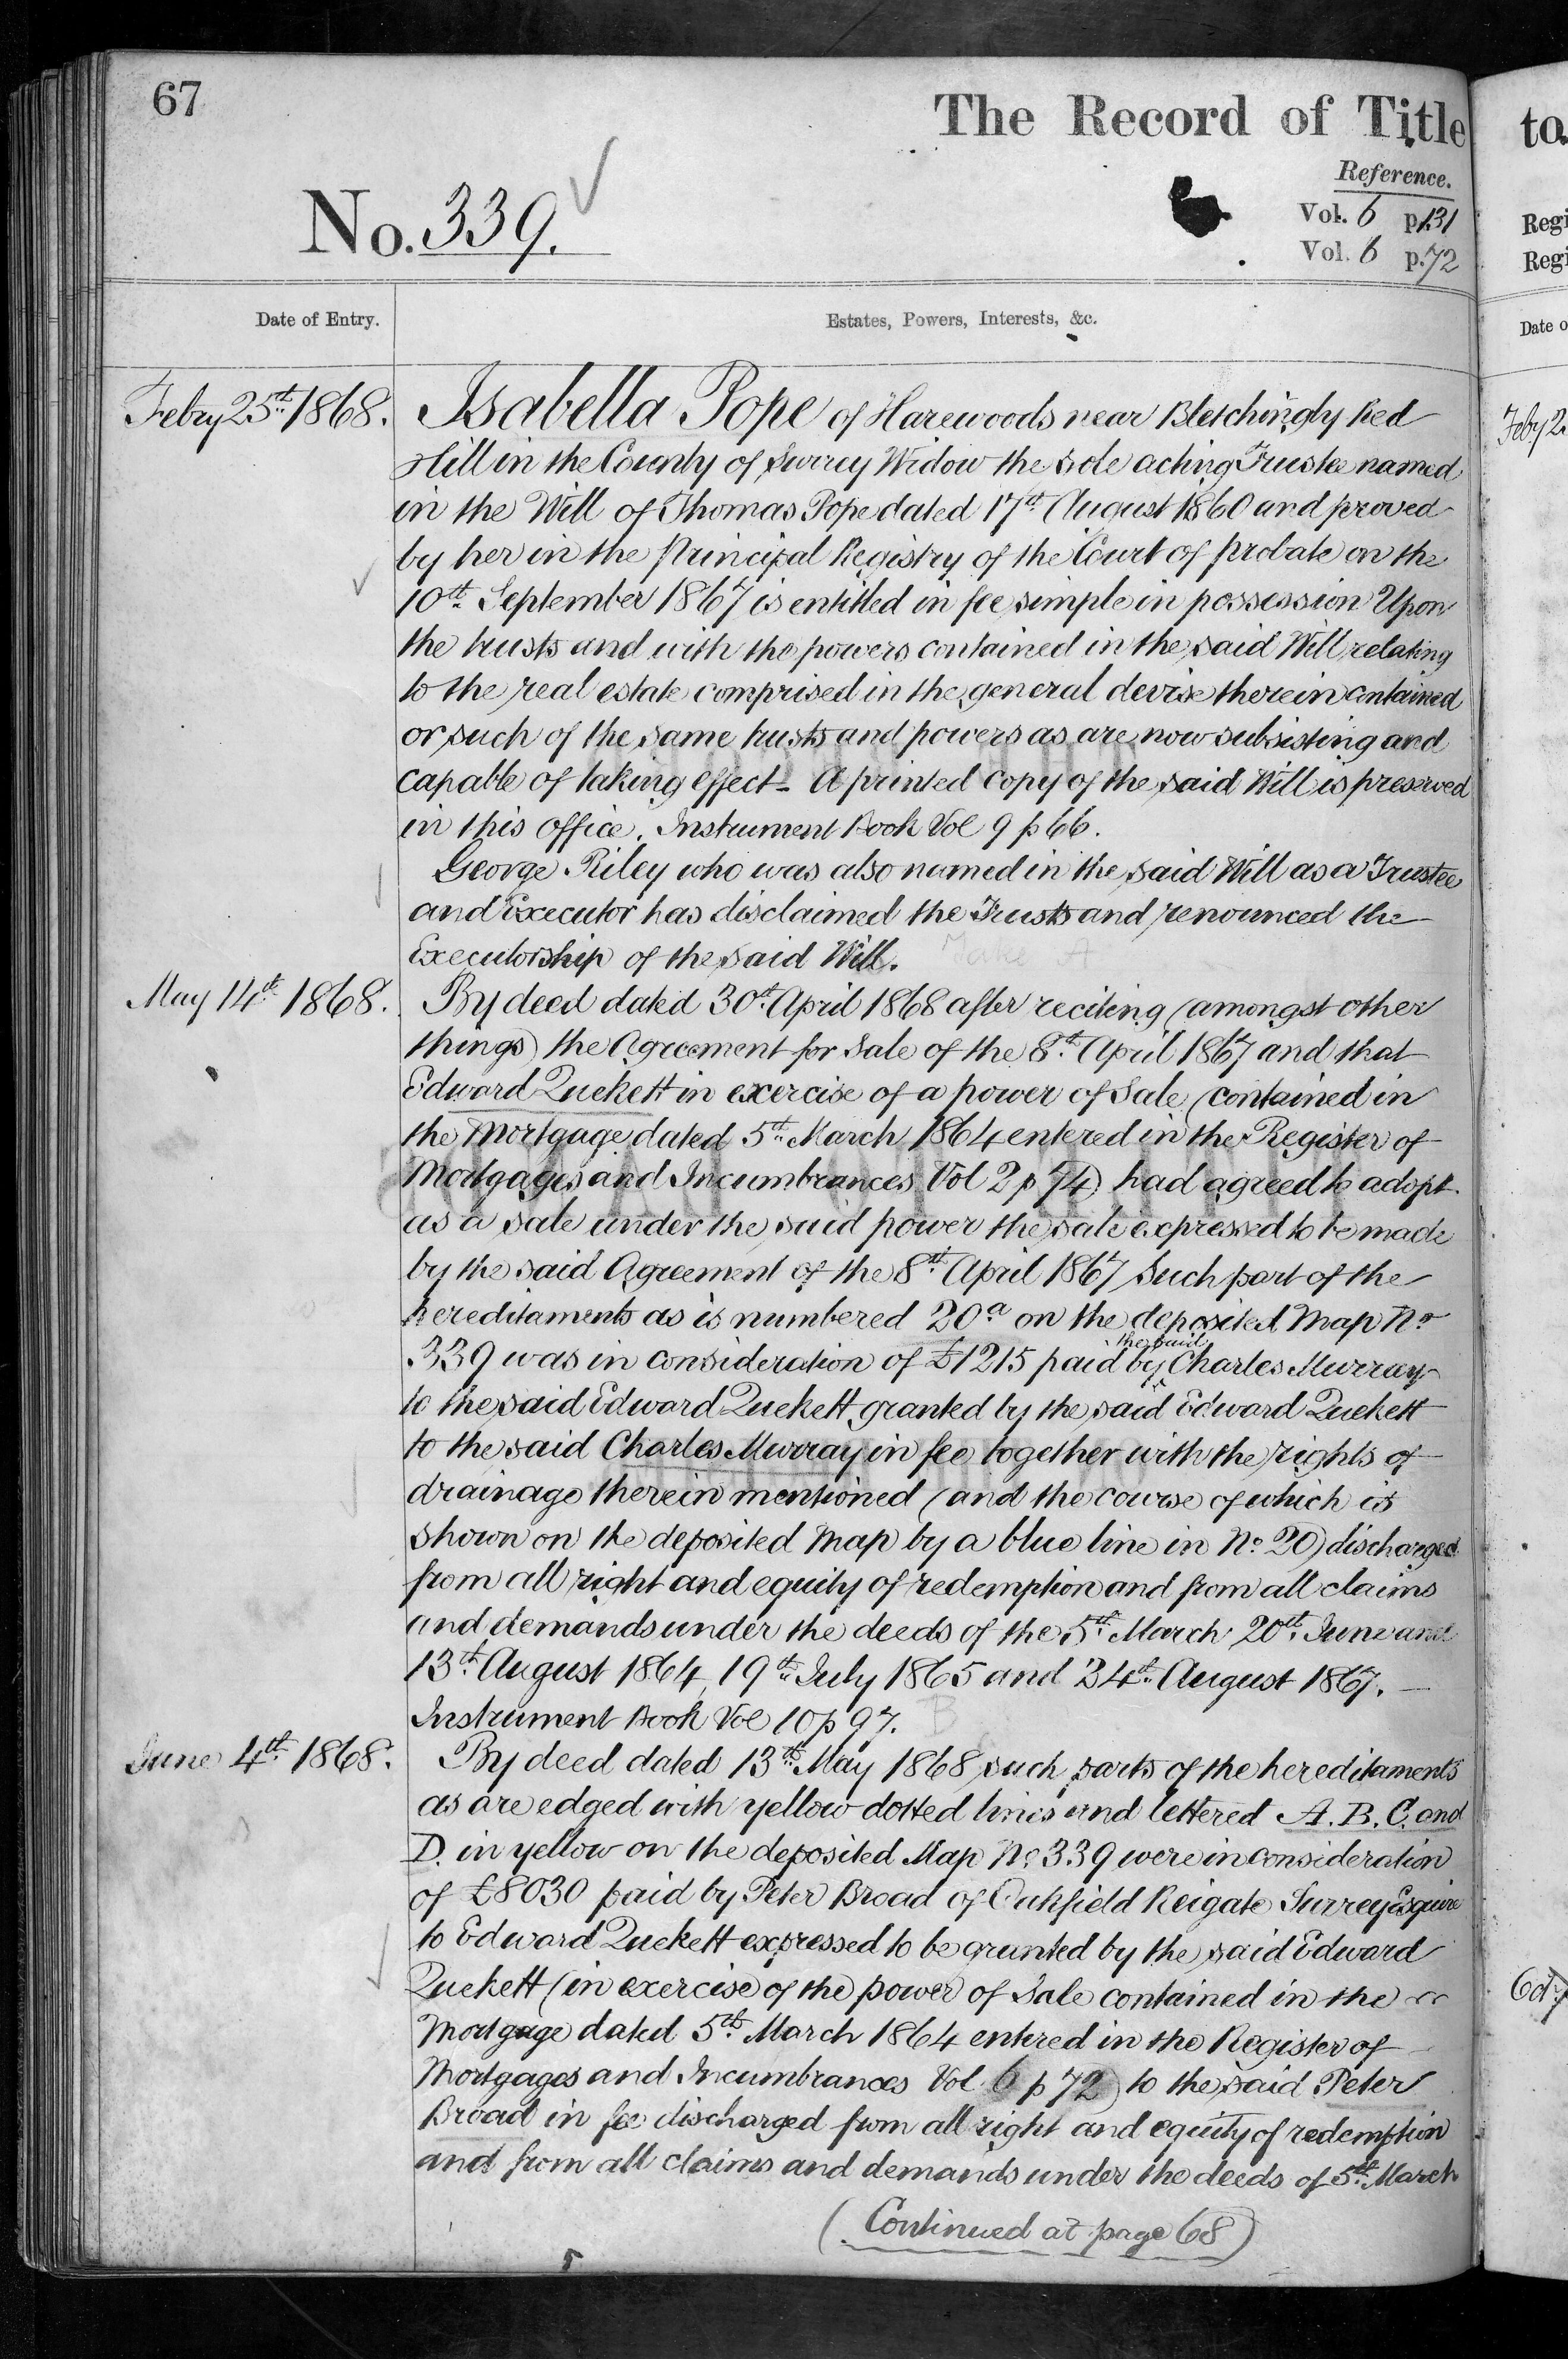 67
The Record of Title
Reference.
No. 339.
Vol. 6 p.131
Vol. 6 p.72
Date of Entry.
Estates, Powers, Interests, &c.
Febry 25th 1868.
Isabella Pope of Harewoods near Bletchingly Red
Hill in the County of Surrey Widow the sole acting Trustee named
in the Will of Thomas Pope dated 17th August 1860 and proved
by her in the Principal Registry of the Court of Probate on the
10th September 1867 is entitled in fee simple in possession Upon
the trusts and with the powers contained in the said Will relating
to the real estate comprised in the general devise therein contained
or such of the same trusts and powers as are now subsisting and
capable of taking effect - A printed copy of the said Will is preserved
in this office. Instrument Book Vol 9 p 66.
George Riley who was also named in the said Will as a Trustee
and Executor has disclaimed the Trusts and renounced the
Executorship of the said Will.
May 14th 1868.
By deed dated 30th April 1868 after reciting (amongst other
things) the Agreement for Sale of the 8th April 1867 and that
Edward Quekett in exercise of a power of Sale (contained in
the Mortgage dated 5th March 1864 entered in the Register of
Mortgages and Incumbrances Vol 2 p 74) had agreed to adopt
as a sale under the said power the sale expressed to be made
by the said Agreement of the 8th April 1867 Such part of the
hereditaments as is numbered 20a on the deposited Map No
339 was in consideration of £1215 paid by the said Charles Murray
to the said Edward Quekett granted by the said Edward Quekett
to the said Charles Murray in fee together with the rights of
drainage therein mentioned (and the course of which is
shown on the deposited Map by a blue line in No. 20) discharged
from all right and equity of redemption and from all claims
and demands under the deeds of the 5th March 20th June and
13th August 1864, 19th July 1865 and 24th August 1867. —
Instrument Book Vol 10 p 97. B
June 4th 1868.
By deed dated 13th May 1868 such parts of the hereditaments
as are edged with yellow dotted lines and lettered A. B. C. and
D. in yellow on the deposited Map No 339 were in consideration
of £8030 paid by Peter Broad of Oakfield Reigate Surrey Esquire
to Edward Quekett expressed to be granted by the said Edward
Quekett (in exercise of the power of Sale contained in the
Mortgage dated 5th March 1864 entered in the Register of
Mortgages and Incumbrances Vol 6 p 72) to the said Peter
Broad in fee discharged from all right and equity of redemption
and from all claims and demands under the deeds of 5th March
(Continued at page 68)
to
Regi
Regi
Date o
Feby 2